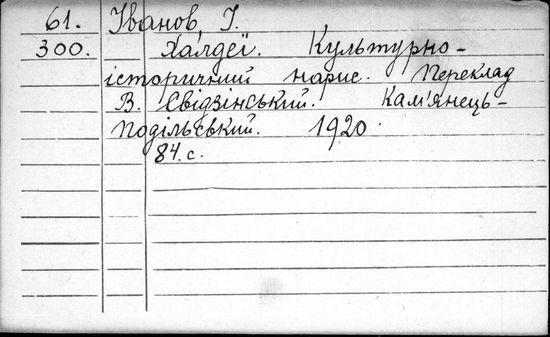 61. Іванов І.
300. Халдеї. Культурно-
історичний нарис. Переклад
В. Свідзінський. Кам'янець-
Подільський. 1920.
84. с.